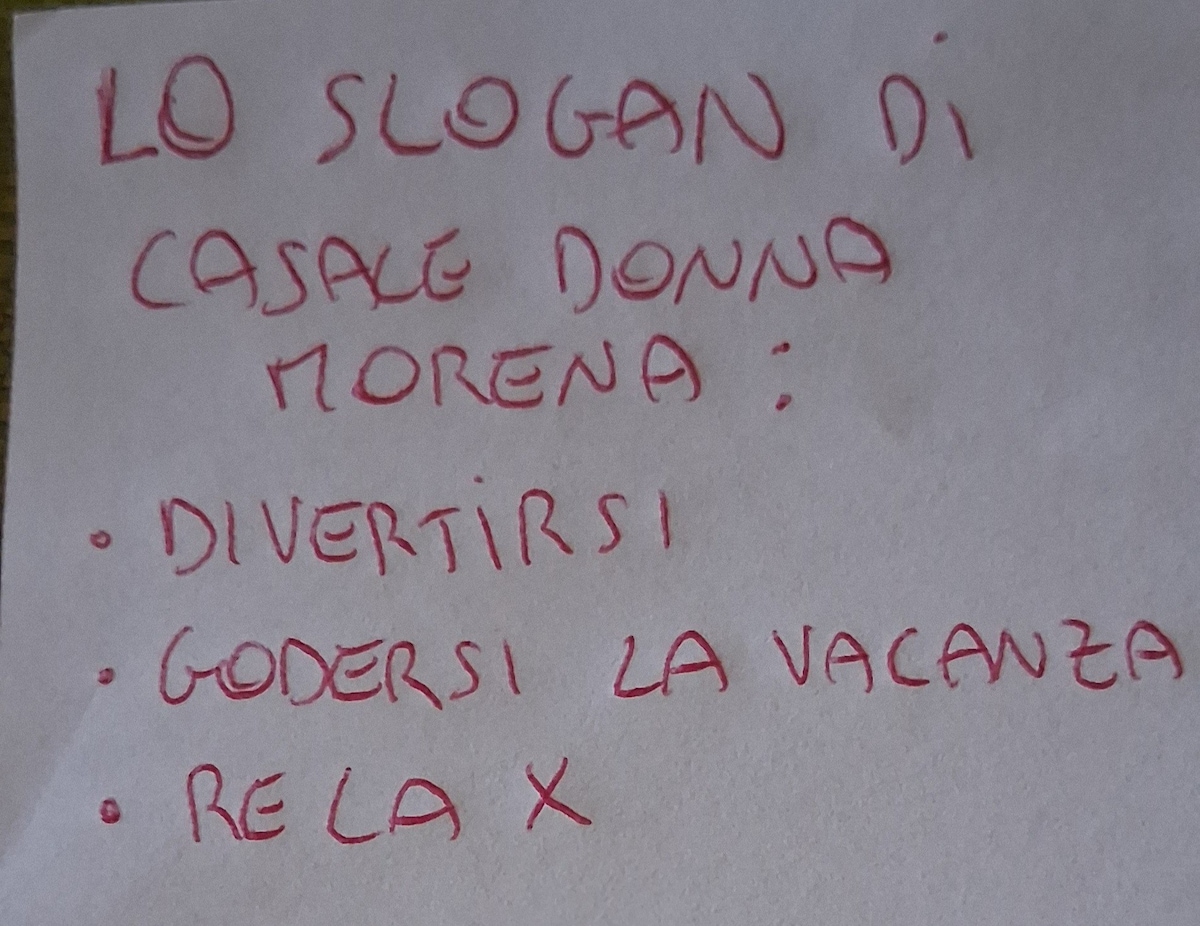 LO SLOGAN Di
CASALE DONNA
MORENA :
• DIVERTiRSI
• GODERSI LA VACANZA
• RELAX